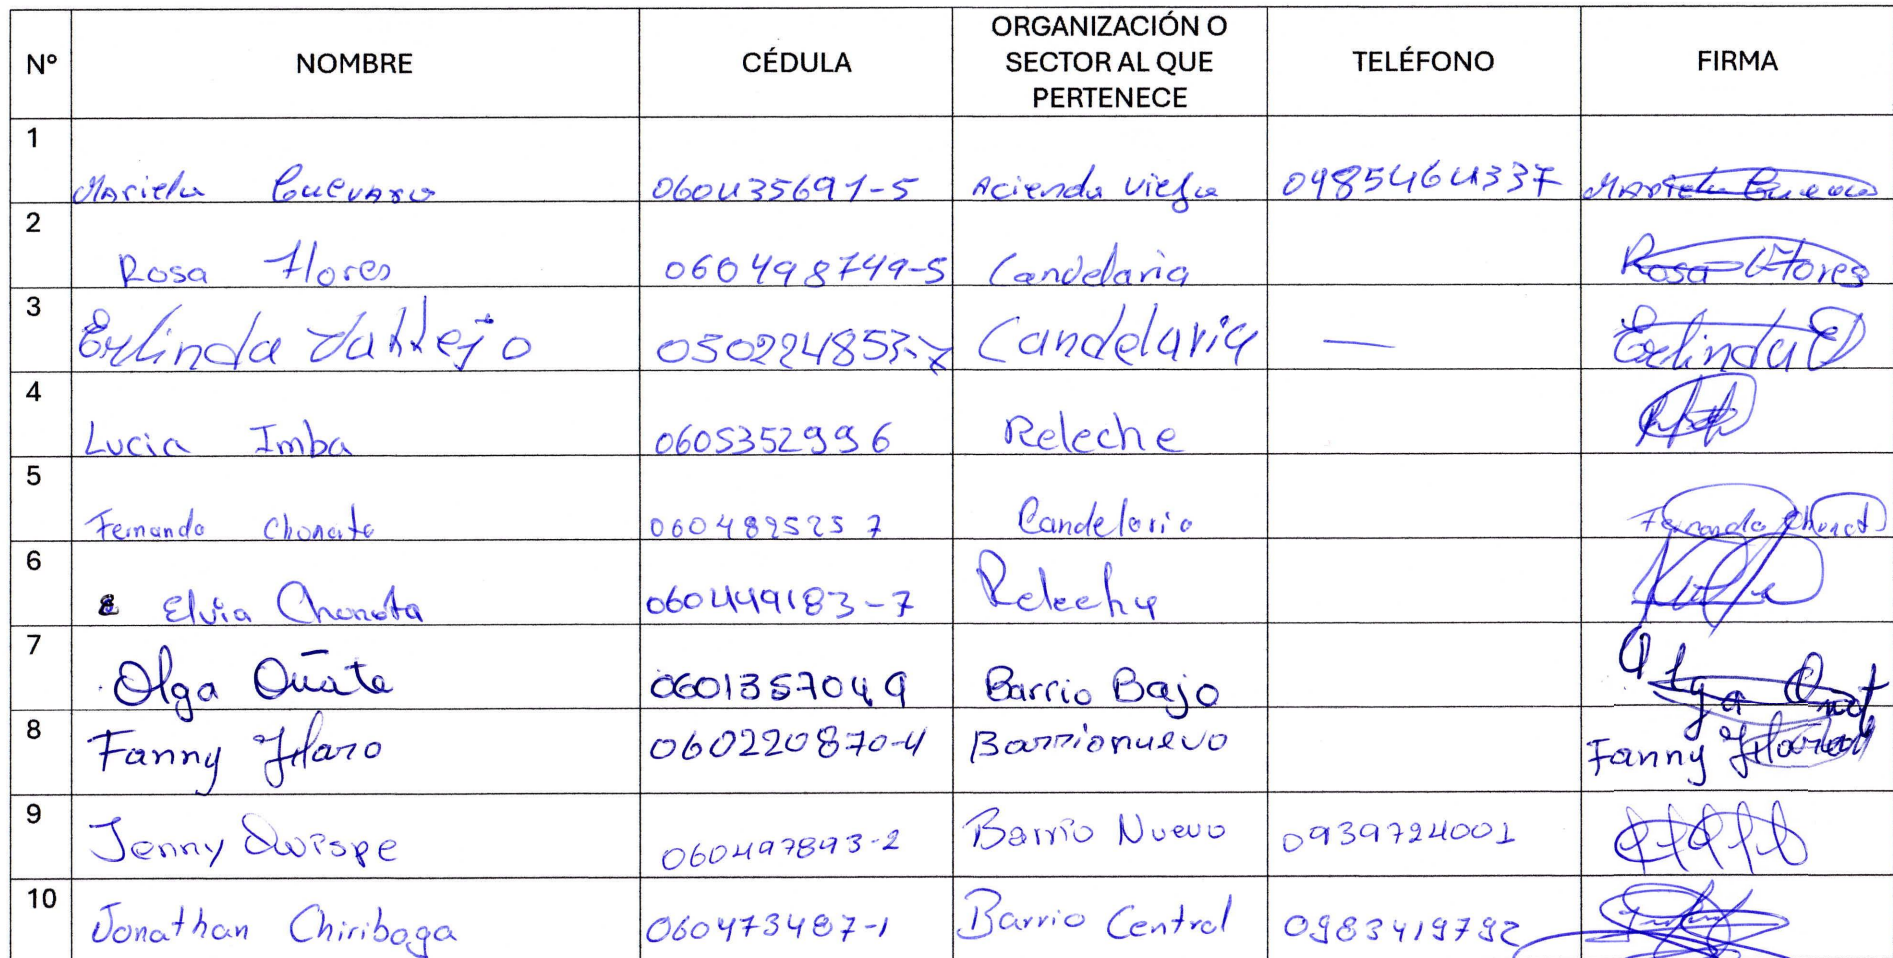 Nº NOMBRE CÉDULA ORGANIZACIÓN O SECTOR AL QUE PERTENECE TELÉFONO FIRMA
1 Mariela Guevara 060435691-5 Acienda Vieja 0985464337 Mariela Guevara
2 Rosa Flores 060498749-5 Candelaria Rosa Flores
3 Erlinda Vallejo 050224853-7 Candelaria — Erlinda
4 Lucia Imba 0605352996 Releche
5 Fernando Chonata 0604895257 Candelaria Fernando Chonat
6 Elvia Chonata 060449183-7 Releche
7 Olga Oñate 0601357049 Barrio Bajo Olga Oñat
8 Fanny Haro 060220870-4 Barrionuevo Fanny Haro
9 Jenny Quispe 060497893-2 Barrio Nuevo 0939724001
10 Jonathan Chiriboga 060473487-1 Barrio Central 0983419792